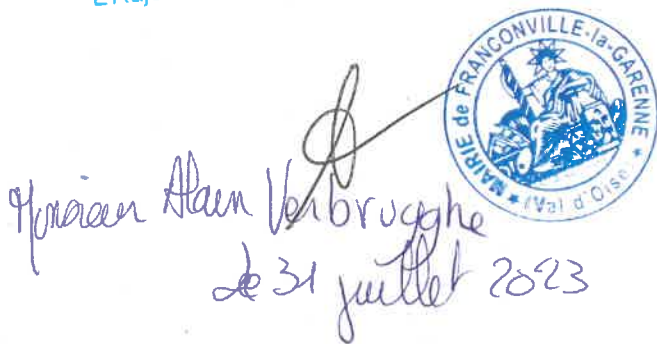 MAIRIE de FRANCONVILLE-la-GARENNE
(Val d'Oise)
Monsieur Alain Verbrugghe
Le 31 juillet 2023